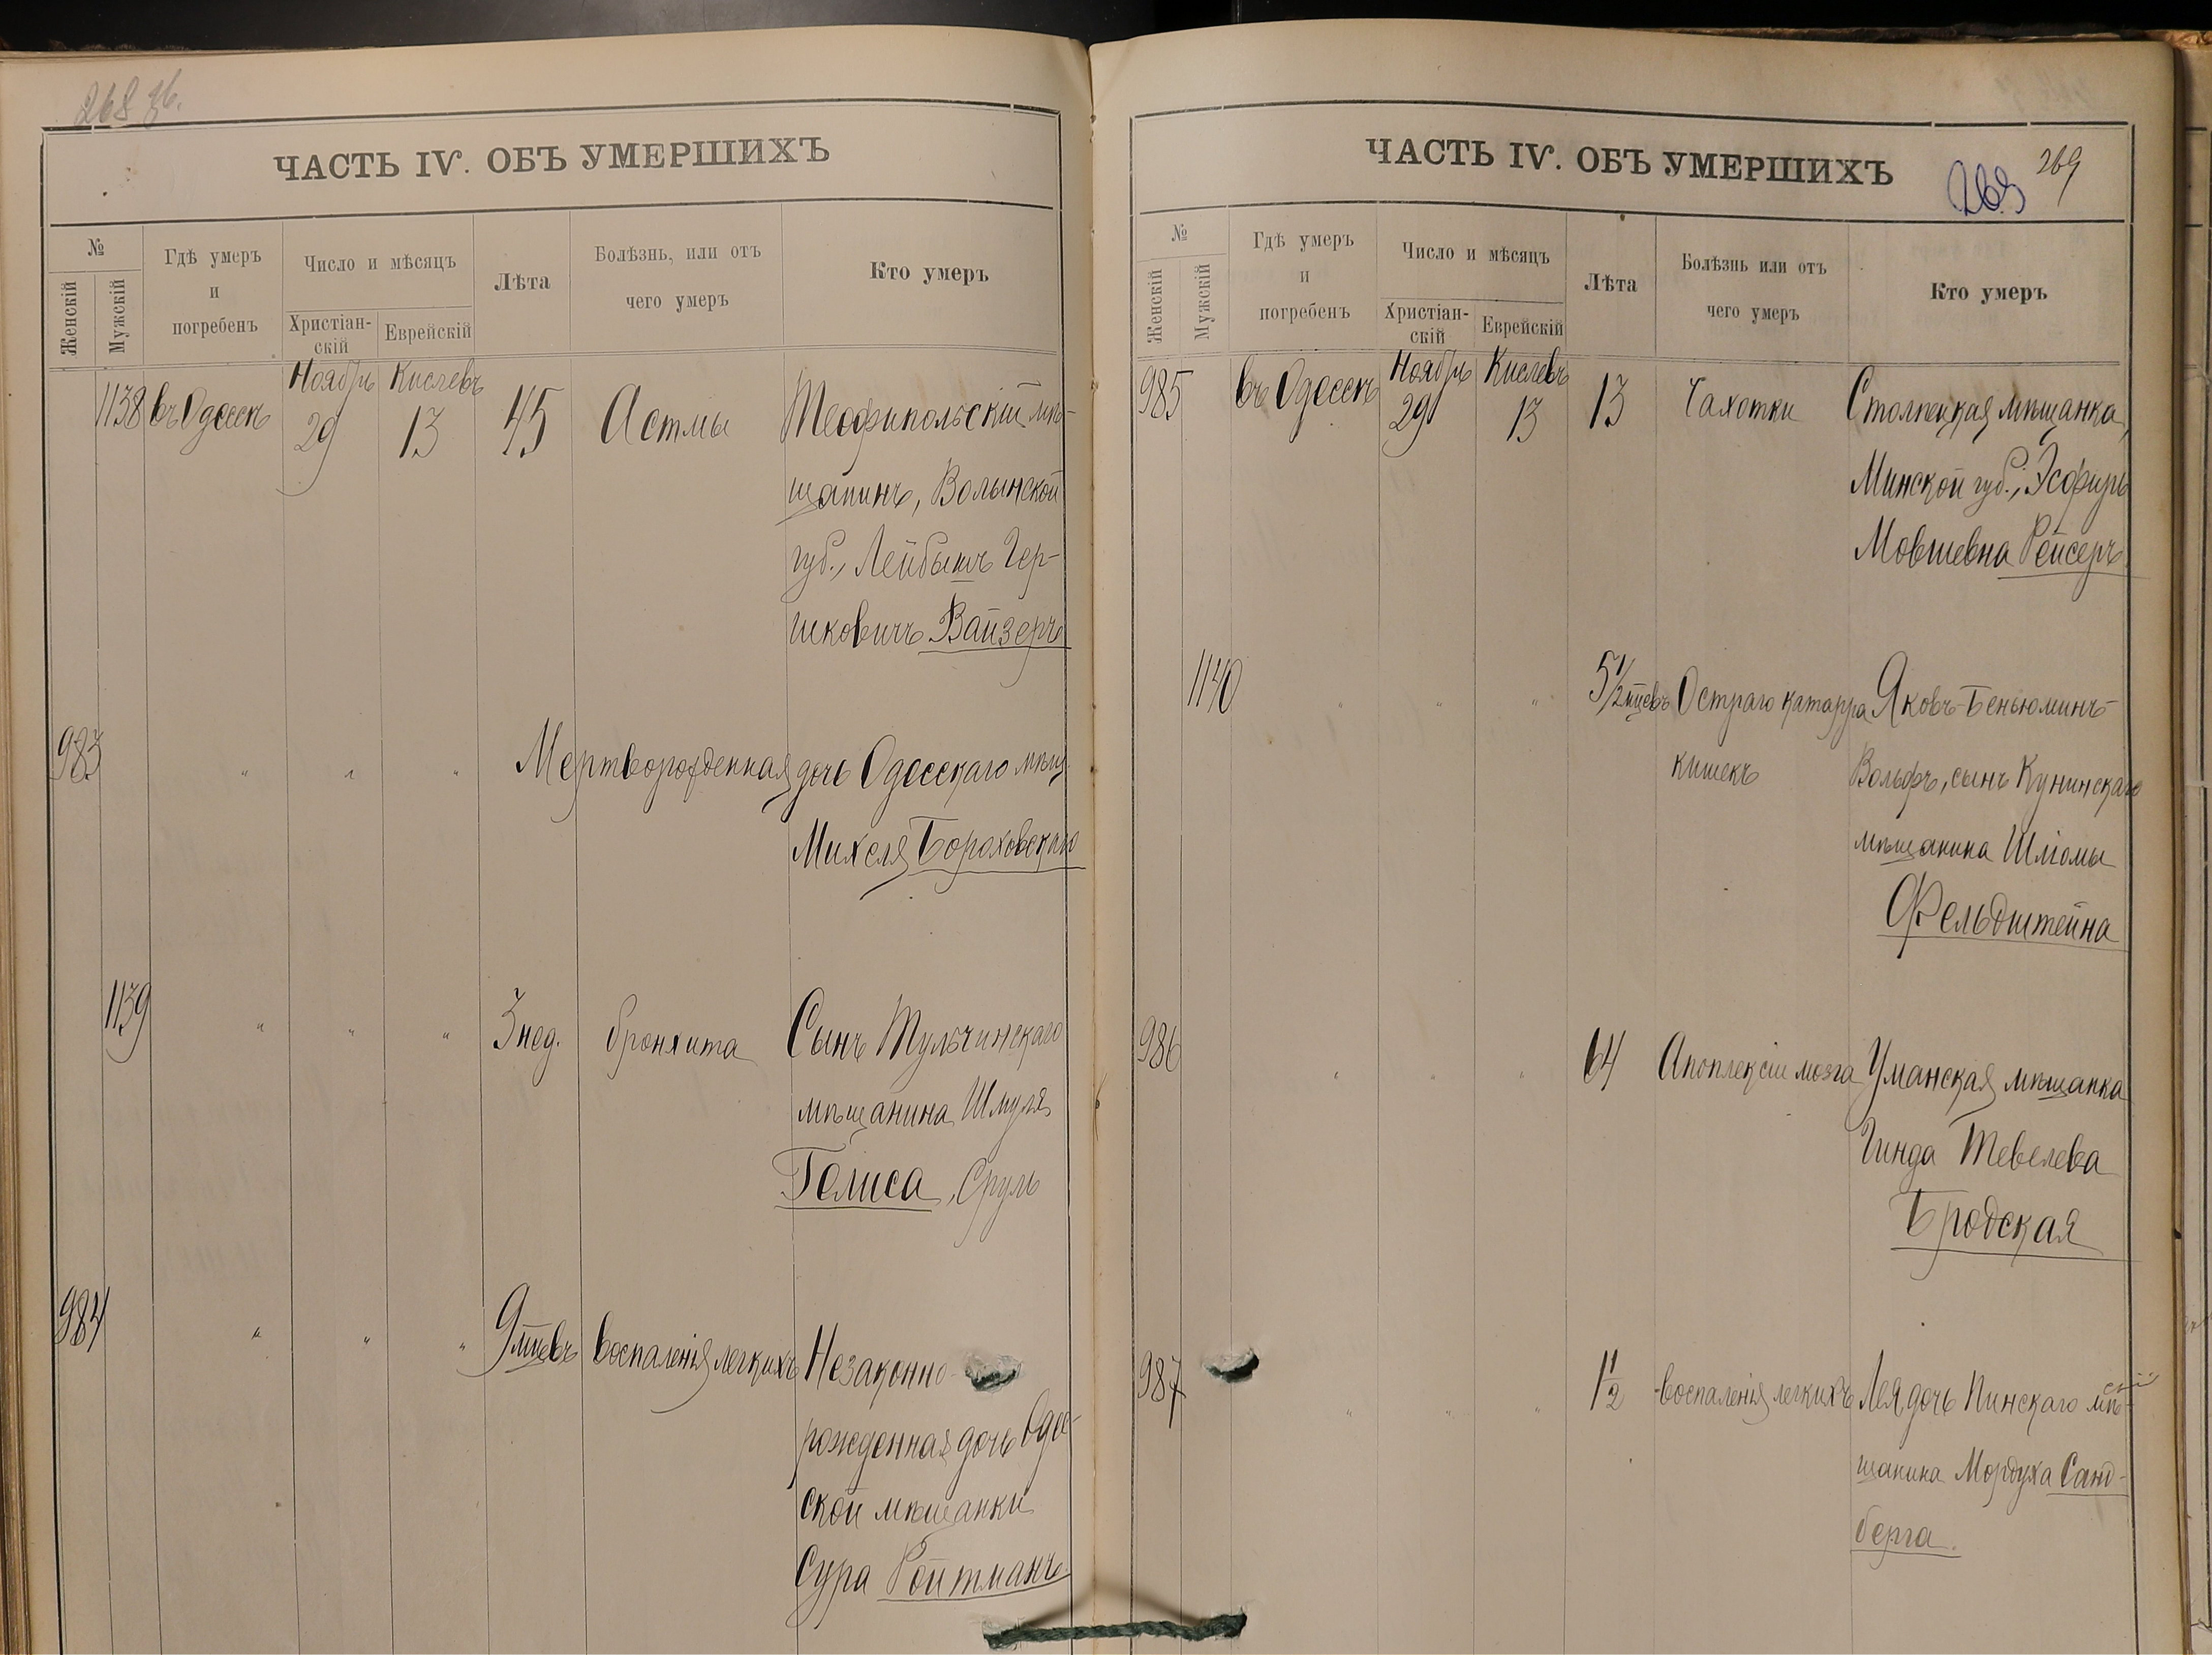 268 об.
ЧАСТЬ IV. ОБЪ УМЕРШИХЪ
№
Женскій
Мужскій
Гдѣ умеръ
и
погребенъ
Число и мѣсяцъ
Христіан-
скій
Еврейскій
Лѣта
Болѣзнь, или отъ
чего умеръ
Кто умеръ
Ноябрь Кислевъ
1138 въ Одессѣ 29 13 45 Астмы Теофипольскій мѣ-
щанинъ, Волынской
губ., Лейбышъ Гер-
шковичъ Вайзеръ
983 " " " Мертворожденная дочь Одесскаго мѣщ
Михеля Бороховскаго
1139 " " " 3 нед. бронхита Сынъ Тульчинскаго
мѣщанина Шмуля
Гелиса, Сруль
984 " " " 9 мцевъ воспаленія легкихъ Незаконно-
рожденная дочь Одес-
ской мѣщанки
Сура Ройтманъ
ЧАСТЬ IV. ОБЪ УМЕРШИХЪ
269 269
№
Женскій
Мужскій
Гдѣ умеръ
и
погребенъ
Число и мѣсяцъ
Христіан-
скій
Еврейскій
Лѣта
Болѣзнь или отъ
чего умеръ
Кто умеръ
Ноябрь Кислевъ
985 въ Одессѣ 29 13 13 Чахотки Столпецкая мѣщанка,
Минской губ., Эсфирь
Мовшевна Рейсеръ
1140 " " " 5 1/2 мцевъ Остраго катарра Яковъ-Беньюминъ-
кишекъ Вольфъ, сынъ Кунинскаго
мѣщанина Шліомы
Фельдштейна
986 " " " 64 Апоплексіи мозга Уманская мѣщанка
Гинда Тевелева
Бродская
987 " " " 1 1/2 воспаленія легкихъ Лея дочь Пинскаго мѣ-
щанина Мордуха Санд-
берга.